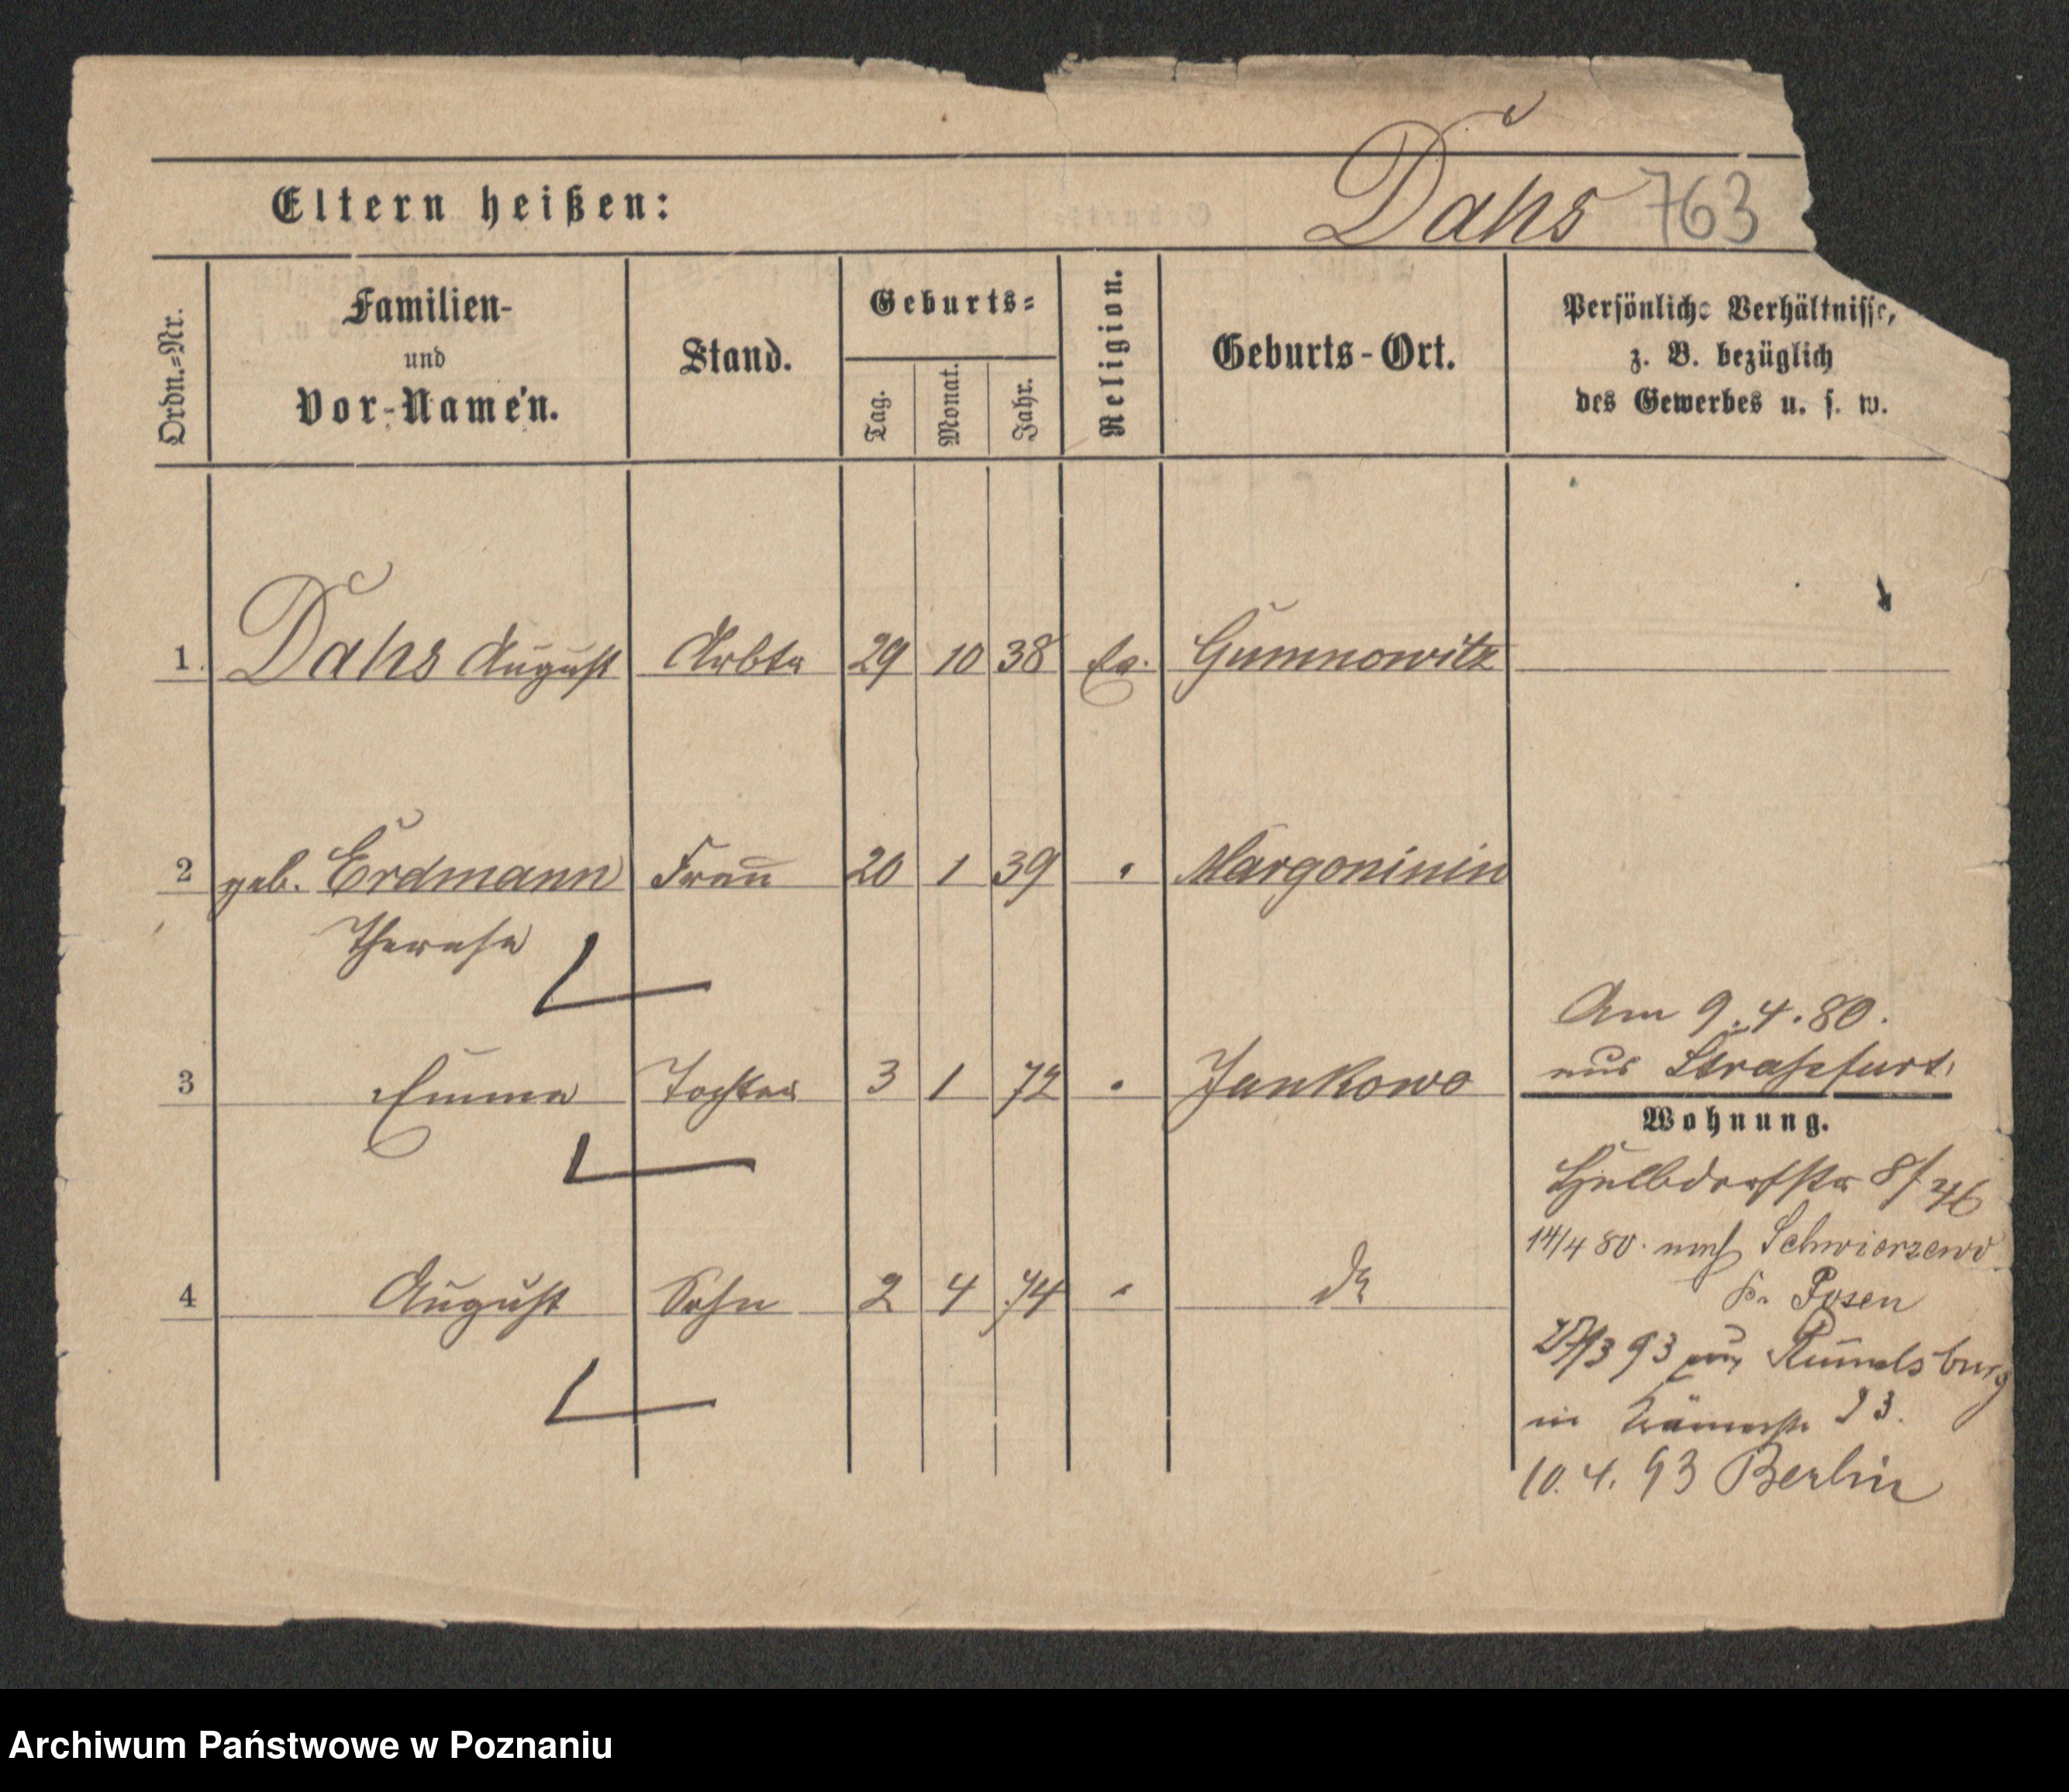 Eltern heißen:
Dahs 763
Ordn.=Nr.
Familien-
und
Vor-Namen.
Stand.
Geburts=
Tag.
Monat.
Jahr.
Religion.
Geburts-Ort.
Persönliche Verhältnisse,
z. B. bezüglich
des Gewerbes u. s. w.
1. Dahs August Arbtr 29 10 38 Ev. Gumnowitz
2 geb. Erdmann Frau 20 1 39 " Margoninin
Therese
Am 9.4.80.
aus Strassfurt.
3 Emma Tochter 3 1 72 " Jankowo
Wohnung.
8/
14/4 80. nach Schwierzewo
4 August Sohn 2 4 74 " do
Kr. Posen
93 aus Rumelsburg
in 23.
10.4.93 Berlin
Archiwum Państwowe w Poznaniu